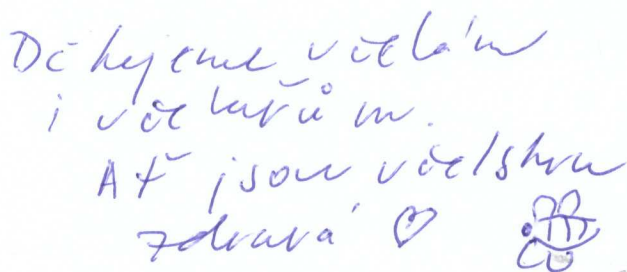 Děkujeme včelám
i včelařům.
Ať jsou včelstva
zdravá